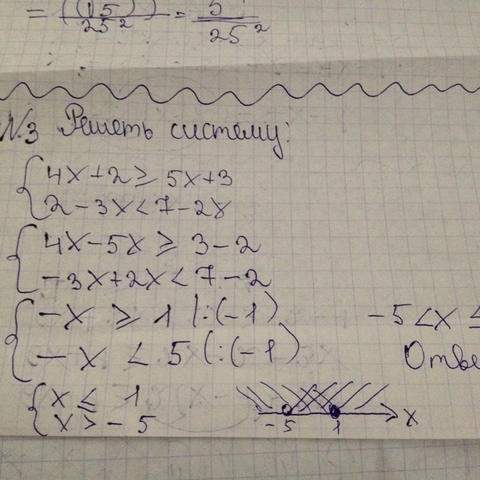 = ((15)) / 25² = 5 / 25²
№3 Решеть систему:
{ 4x+2 ≥ 5x+3
2-3x < 7-2x
{ 4x-5x ≥ 3-2
-3x+2x < 7-2
{ -x ≥ 1 |:(-1)
-x < 5 (:(-1)
-5 < x ≤
Отве
{ x ≤ 1
x > -5
-5 1 x